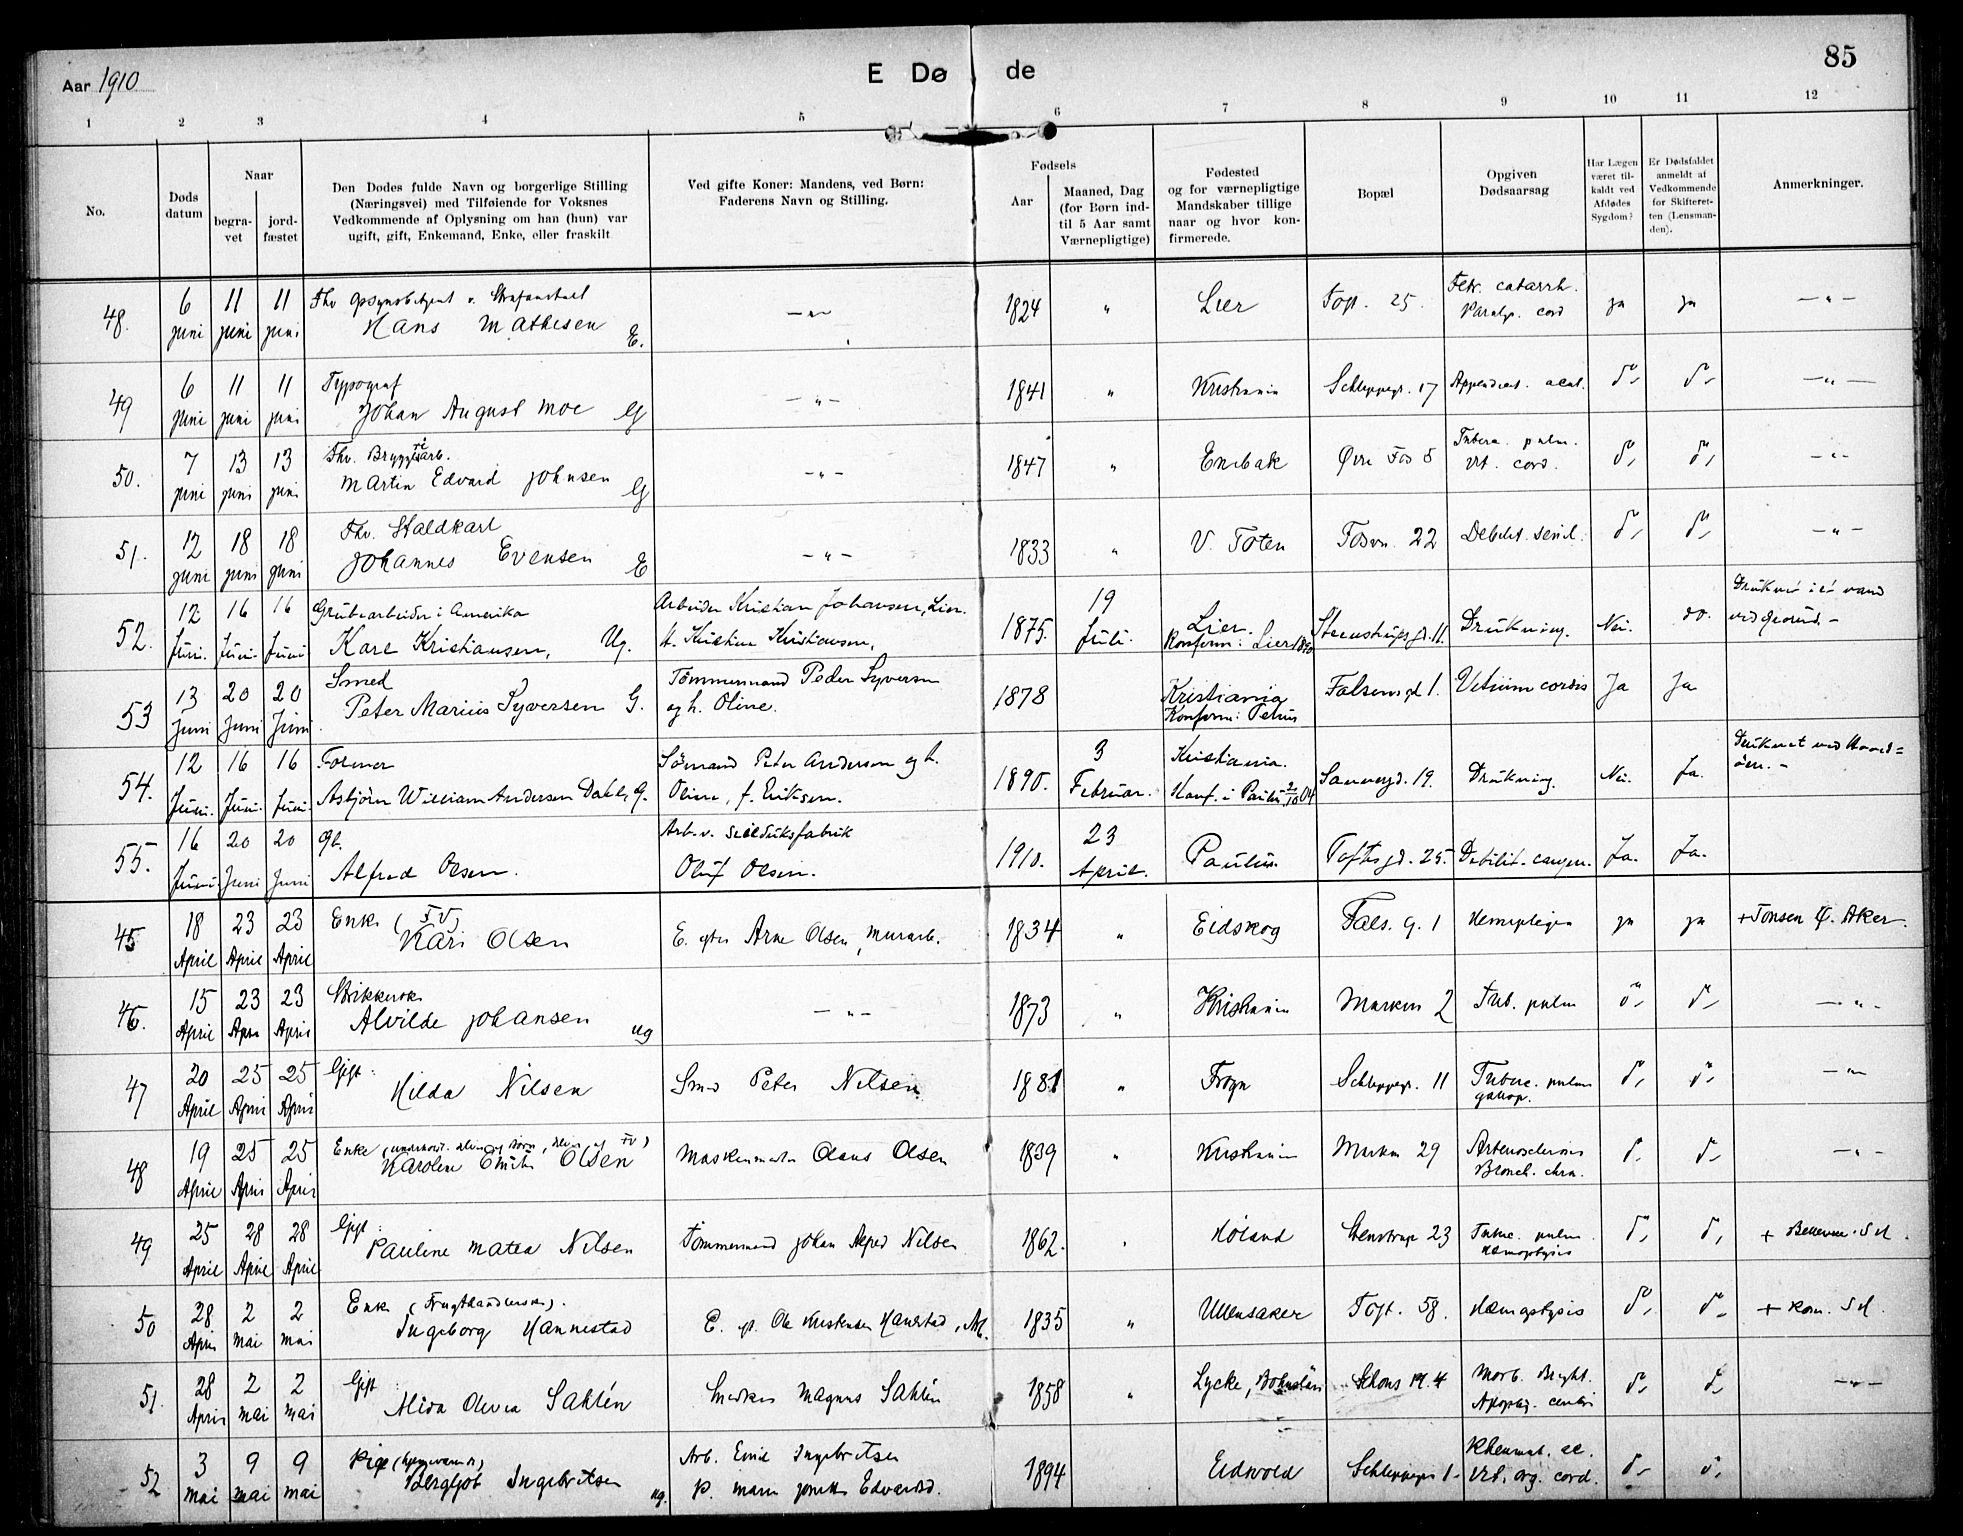 Aar 1910
E Døde
85
1 2 3 4 5 6 7 8 9 10 11 12
No.
Døds datum
Naar
begra-vet
jord-fæstet
Den Dødes fulde Navn og borgerlige Stilling
(Næringsvei) med Tilføiende for Voksnes
Vedkommende af Oplysning om han (hun) var
ugift, gift, Enkemand, Enke, eller fraskilt
Ved gifte Koner: Mandens, ved Børn:
Faderens Navn og Stilling.
Fødsels
Aar
Maaned, Dag
(for Børn ind-
til 5 Aar samt
Værnepligtige)
Fødested
og for værnepligtige
Mandskaber tillige
naar og hvor kon-
firmerede.
Bopæl
Opgiven
Dødsaarsag
Har Lægen
været til-
kaldt ved
Afdødes
Sygdom?
Er Dødsfaldet
anmeldt af
Vedkommende
for Skifteret-
ten (Lensman-
den).
Anmerkninger.
48. 6 juni 11 juni 11 juni Fhv Opsynsbetjent v. Strafanstalt
Hans Mathesen E. —"— 1824 " Lier Toft. 25. ja ja —"—
49 6 juni 11 juni 11 juni Typograf
Johan August Moe G —"— 1841 " Kristiania Schleppegr. 17 do do —"—
50. 7 juni 13 juni 13 juni Fhv. Bryggeriarb.
Martin Edvard Johnsen G —"— 1847 " Enebak Øvre Fos 8 Tuberc. pulm.
Vit. cord. do do —"—
51. 12 juni 18 juni 18 juni Fhv. Staldkarl
Johannes Evensen E —"— 1833 " V. Toten Fosvn. 22 Debilit. senil. do do —"—
52. 12 Juni. 16 Juni. 16 Juni Grubearbeider i Amerika
Karl Kristiansen, Ug. Arbeider Kristian Johansen, Lier.
H. Kristine Kristiansen, 1875. 19 Juli. Lier.
Konfirm: Lier 1890 Steenstrups gd. 11. Drukning. Nei. do.
53 13 Juni 20 Juni 20 Juni Smed
Peter Marius Syversen G. Tömmermand Peder Syversen
og h. Oline. 1878 Kristiania
Konfirm: Petrus Falsens gd 1. Vitium cordis Ja Ja
54. 12 Juni. 16 Juni. 16 Juni. Former
Asbjörn William Andersen Dahl, G. Sömand Peter Andersen og h.
Oline, f. Eriksen. 1890. 3 Februar. Kristiania.
Konf. i Paulus 2/10 04 Sannergd. 19. Drukning. Nei. Ja. Druknet ved Hoved=
öen. —
55. 16 Juni. 20 Juni 20 Juni Gb.
Alfred Olsen. Arb. v. Seildugsfabrik
Oluf Olsen. 1910. 23 April. Paulus Toftesgd. 25. Debilit. congen. Ja. Ja.
45 18 April 23 April 23 April Enke (FV)
Kari Olsen E. efter Arne Olsen, murarb. 1834 " Eidskog Fals. g. 1 Hemiplegia ja ja + Tonsen K. Aker.
46. 15 April 23 Apr 23 April Strikkerske
Alvilde Johansen ug —"— 1873 " Kristiania Marken 2 Tub. pulm do do —"—
47 20 April 25 April 25 April Gift:
Hilda Nilsen Smed Peter Nilsen 1881 " Frogn Schleppegr. 11 Tuberc. pulm
galop. do do —"—
48 19 April 25 April 25 April Enke
Karoline Emilie Olsen Maskinmester Olaus Olsen 1839 " Kristiania Marken 29 Arteriosclerosis
Bronch. chron. do do —"—
49 25 April 28 April 28 April Gift:
Pauline Matea Nilsen Tömmermand Johan Alfred Nilsen 1862. " Høland Stenstrup 23 Tuberc. pulm
Hæmoptysis do do + Bellevue. S H.
50 28 April 2 mai 2 mai Enke (Frugthandlerske).
Ingeborg Hannestad E. eft. Ole Kristensen Hannestad, Ab. 1835 " Ullensaker Toft. 58. Hæmoptysis do do + Kom. S H.
51. 28 April 2 mai 2 mai Gift:
Alida Olivia Sahlén Snedker Magnus Sahlén 1858 " Lycke, Bohuslän Schous Pl. 4 Morb. Bright.
Apoplex. cerebri do do —"—
52 3 mai 9 mai 9 mai Pige
Bergljot Ingebritsen ug. Arb. Emil Ingebritsen 1894 Eidsvold Schleppegr 1- Rheumat. ac.
Vit. org. cord. do do